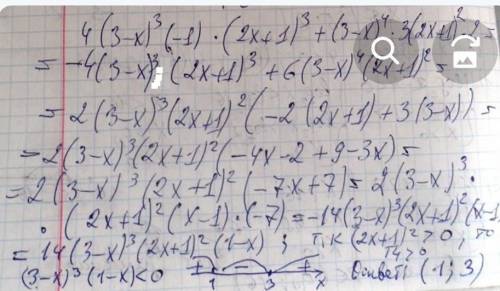 4(3-x)³(-1)·(2x+1)³+(3-x)⁴·3(2x+1)²·2=
=-4(3-x)³(2x+1)³+6(3-x)⁴(2x+1)²=
=2(3-x)³(2x+1)²(-2(2x+1)+3(3-x))=
=2(3-x)³(2x+1)²(-4x-2+9-3x)=
=2(3-x)³(2x+1)²(-7x+7)=2(3-x)³·
·(2x+1)²(x-1)·(-7)=-14(3-x)³(2x+1)²(x-1)
=14(3-x)³(2x+1)²(1-x); т.к (2x+1)²>0, то
14>0
(3-x)³(1-x)<0 + - + 1 3 x Ответ: (1; 3)